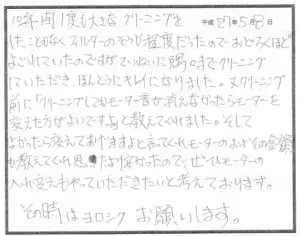 15年間1度も大きなクリーニングを 平成27年5月8日
したことがなくフィルターのそうじ程度だったので、おどろくほど
よごれていたのですがていねいに隅々までクリーニング
していただき、ほんとうにキレイになりました。又クリーニング
前に「クリーニングしてもモーター音が消えなかったらモーターを
変えた方がよいですよ」と教えてくれました。そして
よかったら変えてあげますよと言ってくれモーターのおよその金額
も教えてくれ思ったより安かったので、ぜひモーターの
入れ変えもやっていただきたいと考えております。
その時はヨロシクお願いします。